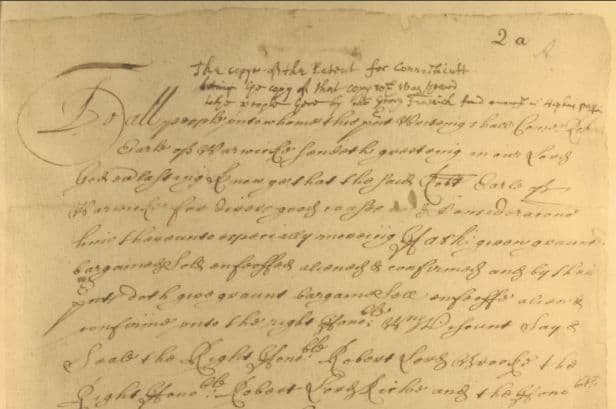 2 a
The copye of the Patent for Connecticutt
being the copy of that copy wch was shewed
to the people here by mr George Fenwick found amongst mr Hopkins papers
To all people unto whome this prsent writeing shall Come Robt
Earle of Warwicke sendeth greeteing in our Lord
God everlasting Know yee that the said Robt Earle of
Warwicke for divers good causes & Consideracons
him thereunto especially moveing Hath given graunted
bargained sold enfeoffed aliened & confirmed and by these
prsents doth give graunt bargaine sell enfeoffe aliene &
confirme unto the right Honoble Wm Viscount Say &
Seale the Right Honoble Robert Lord Brooke the
Right Honoble Robert Lord Rich and the Honoble